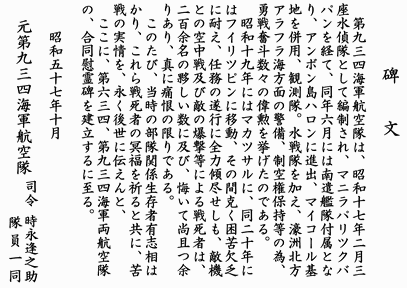 碑文
第九三四海軍航空隊は、昭和十七年二月三
座水偵隊として編制され、マニラバリツクパ
パンを経て、同年六月には南遣艦隊付属とな
り、アンボン島ハロンに進出、マイコール基
地を併用、観測隊。水戦隊を加え、濠洲北方
アラフラ海方面の警備、制空権保持等の為、
勇戦奮斗数々の偉勲を挙げたのである。
昭和十九年にはマカツサルに、同二十年に
はフイリツピンに移動、その間克く困苦欠乏
に耐え、任務の遂行に全力傾尽せしも、敵機
との空中戦及び敵の爆撃等による戦死者は、
二百余名の夥しい数に及び、悔いて尚且つ余
りあり、真に痛恨の限りである。
このたび、当時の部隊関係生存者有志相は
かり、これら戦死者の冥福を祈ると共に、苦
戦の実情を、永く後世に伝えんと、
ここに、第六三四、第九三四海軍両航空隊
の、合同慰霊碑を建立するに至る。
昭和五十七年十月
元第九三四海軍航空隊 司令 時永逢之助
隊員一同